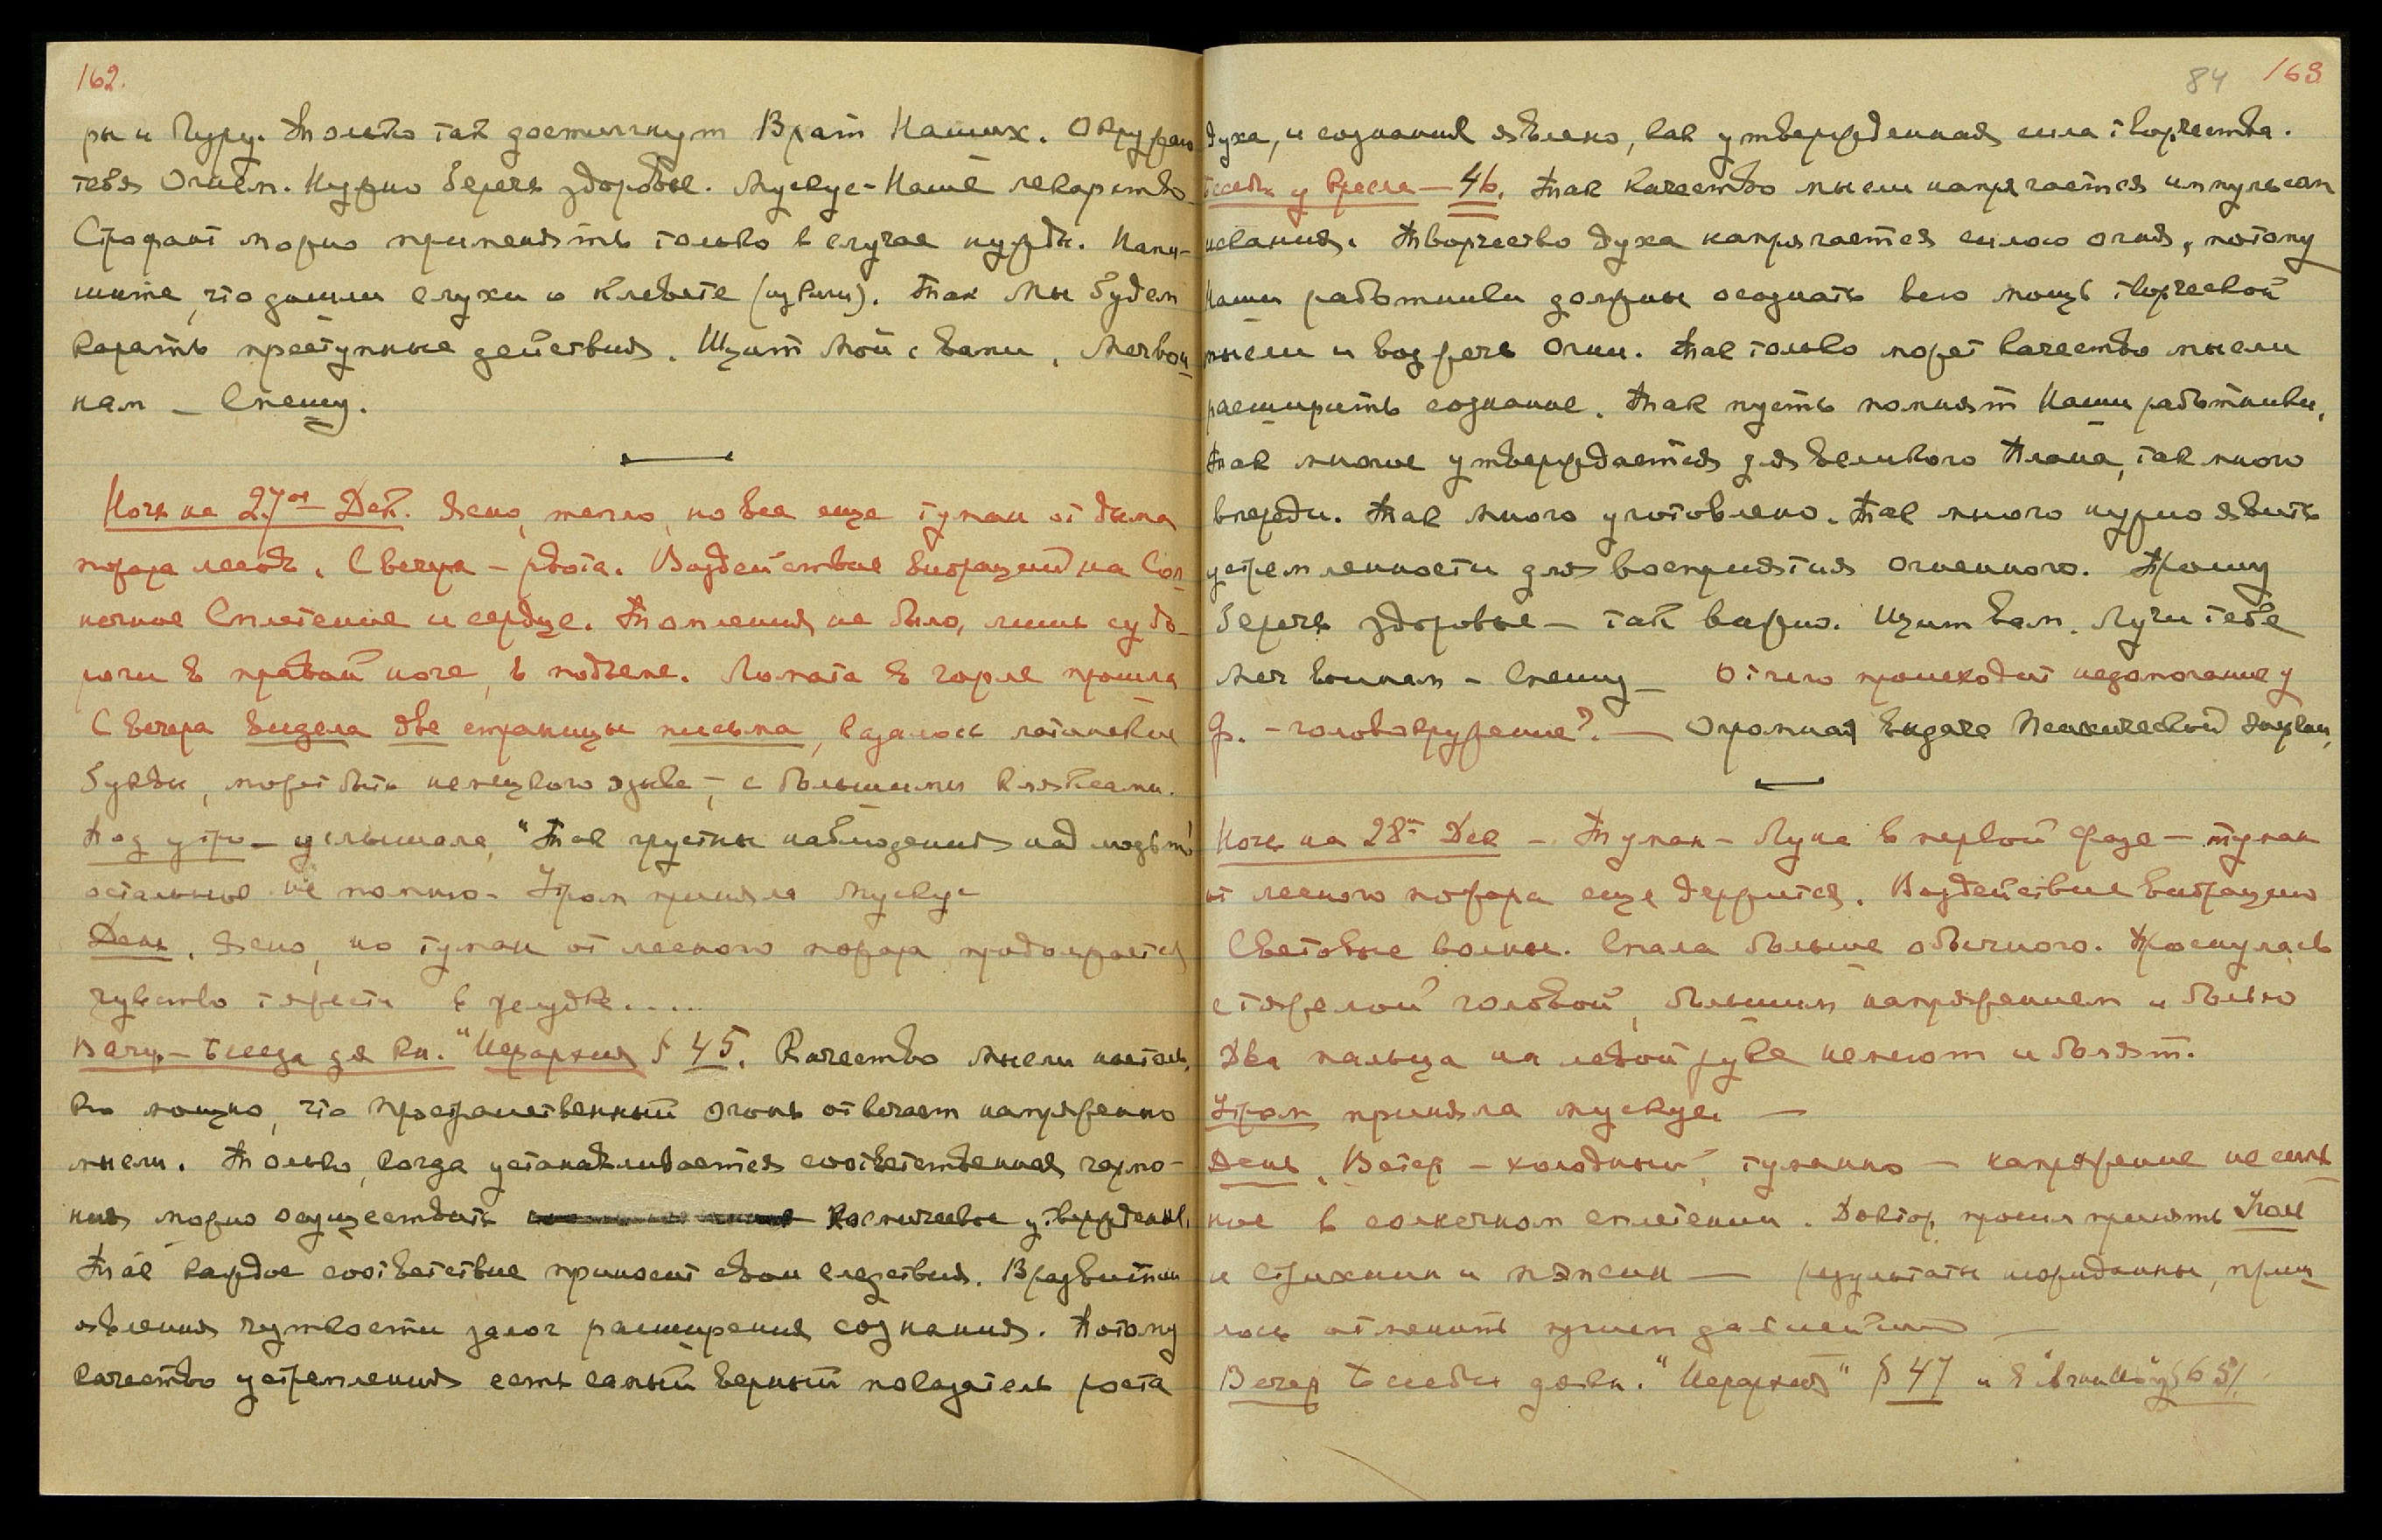 162.
ры и Гуру. Только так достигнут Врат Наших. Окружаю
тебя Огнем. Нужно беречь здоровье. Мускус - Наше лекарство.
Строфант можно применять только в случае нужды. Напи-
шите, что дошли слухи о клевете (). Так Мы будем
карать преступные действия. Щит Мой с вами, Меч вои-
нам - Спешу.
Ночь на 27ое Дек. Ясно, тепло, но все еще туман от дыма
пожара лесов. С вечера - рвота. Воздействие вибраций на Сол-
нечное Сплетение и сердце. Томления не было, лишь судо-
роги в правой ноге, в подъеме. Ломота в горле прошла
С вечера видела две страницы письма, казалось латинские
буквы, может быть немецкого языка, - с большими кляксами.
Под утро - услышала, "Так грустны наблюдения над людьми"
остальное не помню - Утром приняла мускус
День. Ясно, но туман от лесного пожара продолжается
чувство тяжести в желудке.....
Вечер - Беседа для кн. "Иерархия § 45. Качество мысли настоль-
ко мощно, что Пространственный огонь отвечает напряженно
мысли. Только, когда устанавливается соответственная гармо-
ния можно осуществить космические утверждения.
Так каждое соответствие приносит свои следствия. В развитии
явления чуткости залог расширения сознания. Потому
качество устремления есть самый верный показатель роста
84 163
духа, и сознания явлено, как утвержденная сила творчества.
Беседы у Кресла - 46. Так качество мысли напрягается импульсом
искания. Творчество духа напрягается силою огня, потому
Наши работники должны осознать всю мощь творческой
мысли и возжечь Огни. Так только может качество мысли
расширить сознание. Так пусть помнят Наши работники,
Так многое утверждается для великого Плана, так много
впереди. Так много уготовлено. Так много нужно явить
устремленности для восприятия Огненного. Прошу
беречь здоровье - так важно. Щит вам. Лучи тебе
Меч воинам - Спешу - Отчего происходит недомогание у
Ф. - головокружение? - Огромная выдача Психической энергии,
Ночь на 28ое Дек - Туман - Луна в первой фазе - туман
от лесного пожара еще держится. Воздействие вибрацию
Световые волны. Спала больше обычного. Проснулась
с тяжелой головой, большим напряжением и болью
Два пальца на левой руке немеют и болят.
Утром приняла мускус. -
День. Ветер - холодный, туманно - напряжение несиль-
ное в солнечном сплетении. Доктор просил принять
и стрихнин и пэпсин - результаты неожиданны, приш-
лось отменить прием дальнейший -
Вечер Беседы для кн. "Иерархия" § 47 и